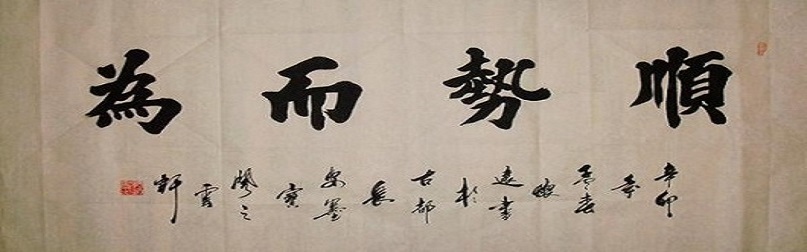 順勢而為
辛卯年春遠書於古都長安墨寶閣之雲軒